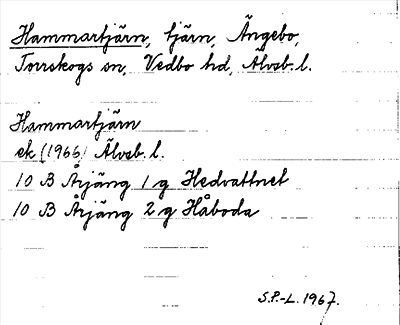 Hammartjärn, tjärn, Ängebo,
Torrskogs sn, Vedbo hd, Älvsb. l.
Hammartjärn
ek (1966) Älvsb. l.
10 B Årjäng 1 g Hedvattnet
10 B Årjäng 2 g Håboda
S.P.-L. 1967.